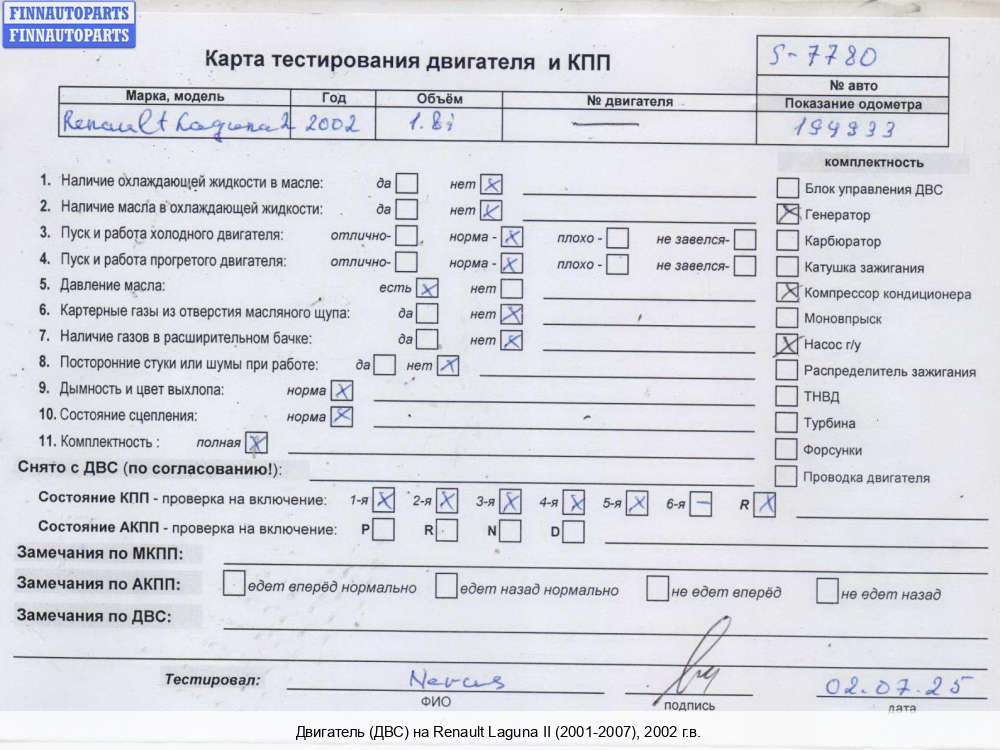 FINNAUTOPARTS
FINNAUTOPARTS
Карта тестирования двигателя и КПП
S-7780
№ авто
Марка, модель Год Объём № двигателя Показание одометра
Renault Laguna 2 2002 1.8i — 194933
комплектность
1. Наличие охлаждающей жидкости в масле: да нет
2. Наличие масла в охлаждающей жидкости: да нет
3. Пуск и работа холодного двигателя: отлично- норма - плохо - не завелся-
4. Пуск и работа прогретого двигателя: отлично- норма - плохо - не завелся-
5. Давление масла: есть нет
6. Картерные газы из отверстия масляного щупа: да нет
7. Наличие газов в расширительном бачке: да нет
8. Посторонние стуки или шумы при работе: да нет
9. Дымность и цвет выхлопа: норма
10. Состояние сцепления: норма
11. Комплектность : полная
Блок управления ДВС
Генератор
Карбюратор
Катушка зажигания
Компрессор кондиционера
Моновпрыск
Насос г/у
Распределитель зажигания
ТНВД
Турбина
Форсунки
Проводка двигателя
Снято с ДВС (по согласованию!):
Состояние КПП - проверка на включение: 1-я 2-я 3-я 4-я 5-я 6-я R
Состояние АКПП - проверка на включение: P R N D
Замечания по МКПП:
Замечания по АКПП: едет вперёд нормально едет назад нормально не едет вперёд не едет назад
Замечания по ДВС:
Тестировал: 02.07.25
ФИО подпись дата
Двигатель (ДВС) на Renault Laguna II (2001-2007), 2002 г.в.